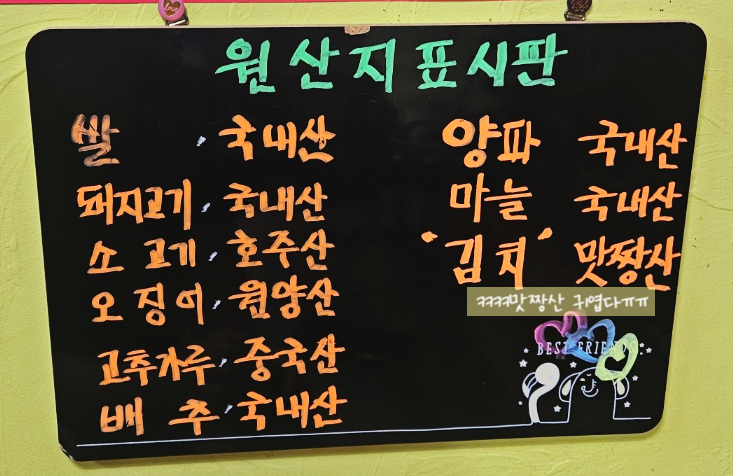 원산지표시판
쌀, 국내산
돼지고기, 국내산
소고기, 호주산
오징어, 원양산
고추가루, 중국산
배추, 국내산
양파 국내산
마늘 국내산
'김치' 맛짱산
ㅋㅋㅋㅋ맛짱산 귀엽다ㅠㅠ
BEST FRIENDS
Love